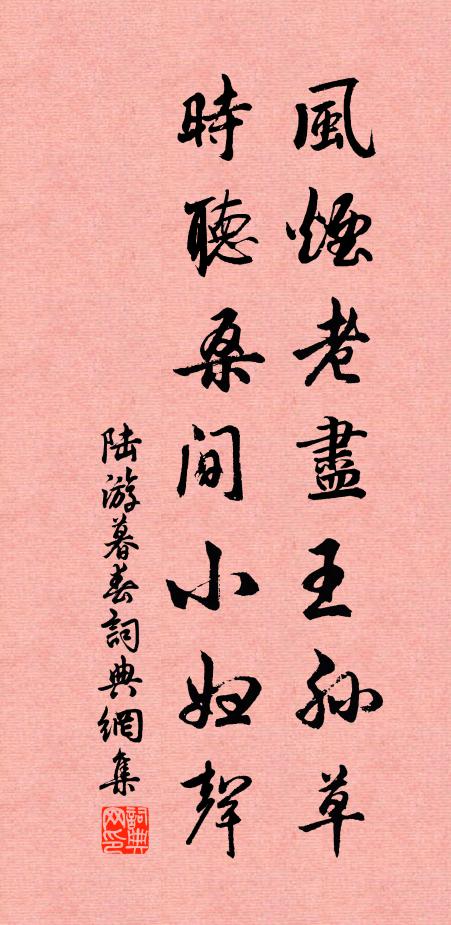 風煙老盡王孫草
時聽桑間小婦聲
陆游暮春詞典網集
詞典网印